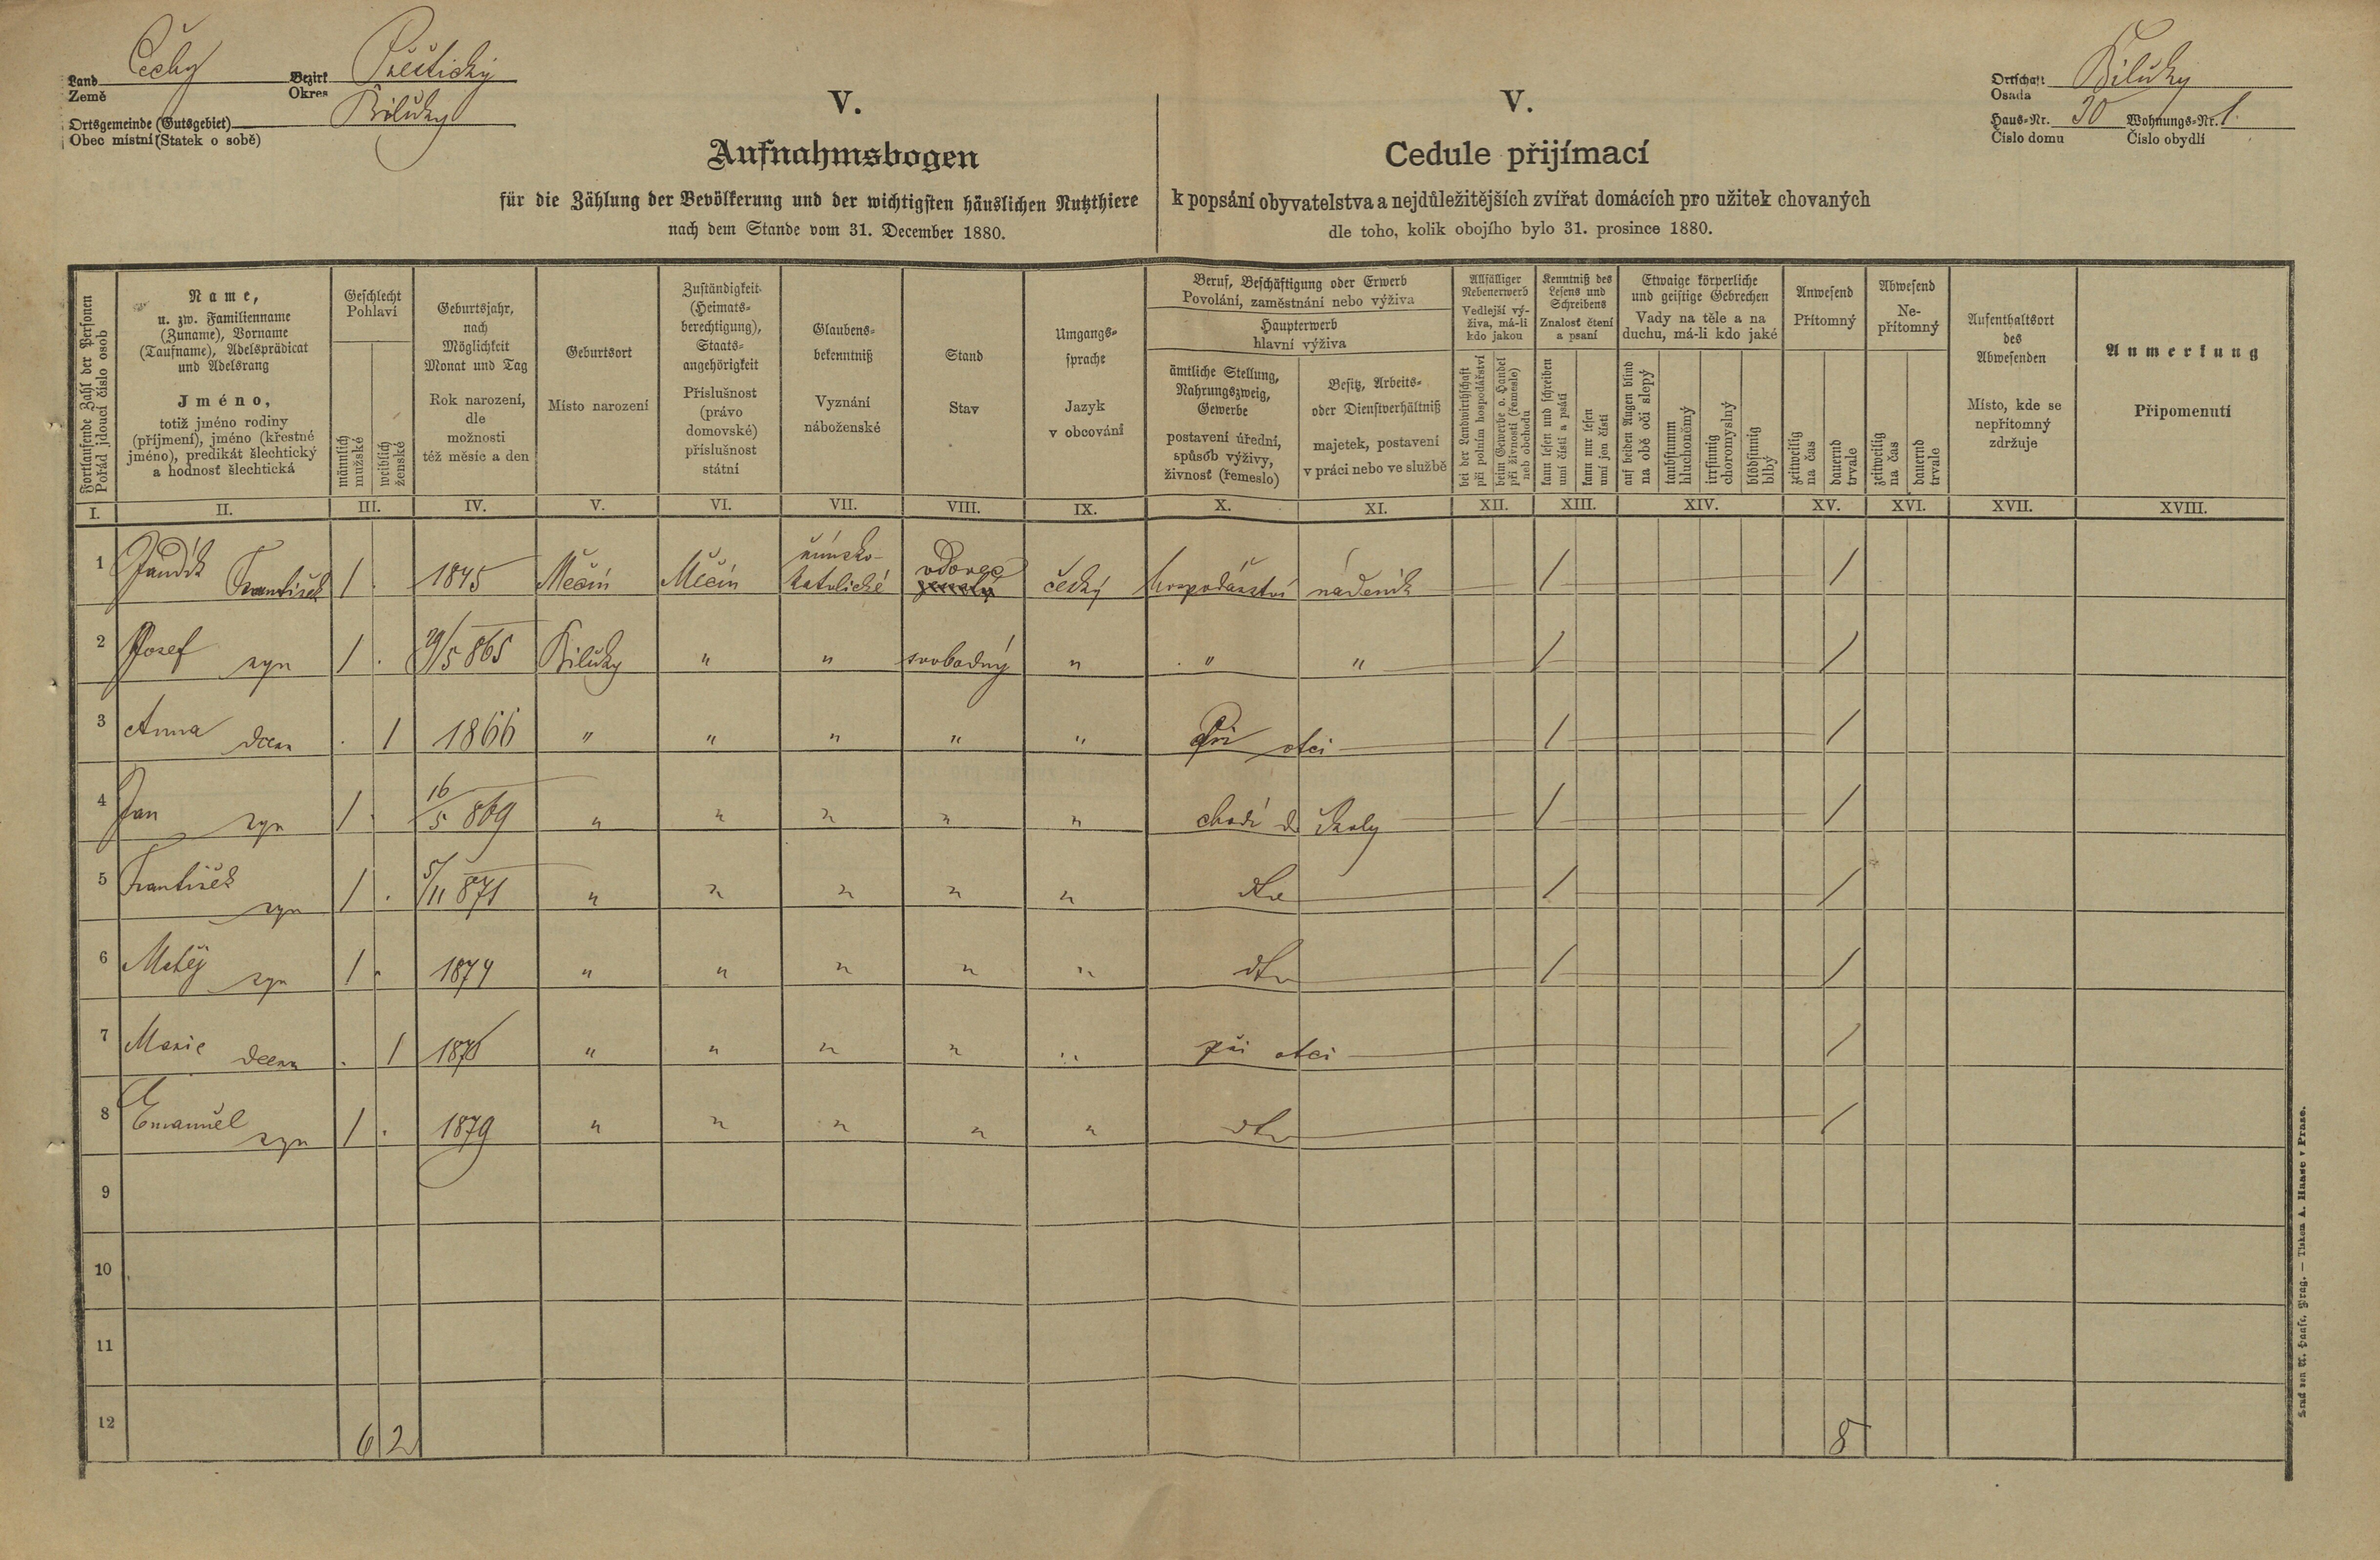 Land Čechy Bezirk Přeštický
Země Okres
Ortsgemeinde (Gutsgebiet) Bilúky
Obec místní (Statek o sobě)
Ortschaft Bilúky
Osada
Haus-Nr. 30 Wohnungs-Nr. 1.
Číslo domu Číslo obydlí
V.
Aufnahmsbogen
für die Zählung der Bevölkerung und der wichtigsten häuslichen Nutzthiere
nach dem Stande vom 31. December 1880.
V.
Cedule přijímací
k popsání obyvatelstva a nejdůležitějších zvířat domácích pro užitek chovaných
dle toho, kolik obojího bylo 31. prosince 1880.
Fortlaufende Zahl der Personen
Pořád jdoucí číslo osob
Name,
u. zw. Familienname
(Zuname), Vorname
(Taufname), Adelsprädicat
und Adelsrang
Jméno,
totiž jméno rodiny
(příjmení), jméno (křestné
jméno), predikát šlechtický
a hodnosť šlechtická
Geschlecht
Pohlaví
männlich
mužské
weiblich
ženské
Geburtsjahr,
nach
Möglichkeit
Monat und Tag
Rok narození,
dle
možnosti
též měsíc a den
Geburtsort
Místo narození
Zuständigkeit
(Heimats-
berechtigung),
Staats-
angehörigkeit
Příslušnost
(právo
domovské)
příslušnost
státní
Glaubens-
bekenntniß
Vyznání
náboženské
Stand
Stav
Umgangs-
sprache
Jazyk
v obcování
Beruf, Beschäftigung oder Erwerb
Povolání, zaměstnání nebo výživa
Haupterwerb
hlavní výživa
ämtliche Stellung,
Nahrungszweig,
Gewerbe
postavení úřední,
spůsob výživy,
živnosť (řemeslo)
Besitz, Arbeits-
oder Dienstverhältniß
majetek, postavení
v práci nebo ve službě
Allfälliger
Nebenerwerb
Vedlejší vý-
živa, má-li
kdo jakou
bei der Landwirthschaft
při polním hospodářství
beim Gewerbe o. Handel
při živnosti (řemeslo)
neb obchodu
Kenntniß des
Lesens und
Schreibens
Znalosť čtení
a psaní
kann lesen und schreiben
umí čísti a psáti
kann nur lesen
umí jen čísti
Etwaige körperliche
und geistige Gebrechen
Vady na těle a na
duchu, má-li kdo jaké
auf beiden Augen blind
na obě oči slepý
taubstumm
hluchoněmý
irrsinnig
choromyslný
blödsinnig
blbý
Anwesend
Přítomný
zeitweilig
na čas
dauernd
trvale
Abwesend
Ne-
přítomný
zeitweilig
na čas
dauernd
trvale
Aufenthaltsort
des
Abwesenden
Místo, kde se
nepřítomný
zdržuje
Anmerkung
Připomenutí
I. II. III. IV. V. VI. VII. VIII. IX. X. XI. XII. XIII. XIV. XV. XVI. XVII. XVIII.
1 Jandík František 1 . 1845 Mečín Mečín římsko-katolické vdovec český hospodářství nádeník / /
2 Josef syn 1 . 865 Bilúky " " svobodný " " " / /
3 Anna dcera . 1 1866 " " " " " Při otci / /
4 Jan syn 1 . 16/5 869 " " " " " chodí do školy / /
5 František syn 1 . 5/11 871 " " " " " dto / /
6 Matěj syn 1 . 1874 " " " " " dto / /
7 Marie dcera . 1 " " " " " při otci /
8 Emanuel syn 1 . 1879 " " " " " dto /
9
10
11
12
6 2 8
Druck von A. Haase, Prag. — Tiskem A. Haase v Praze.